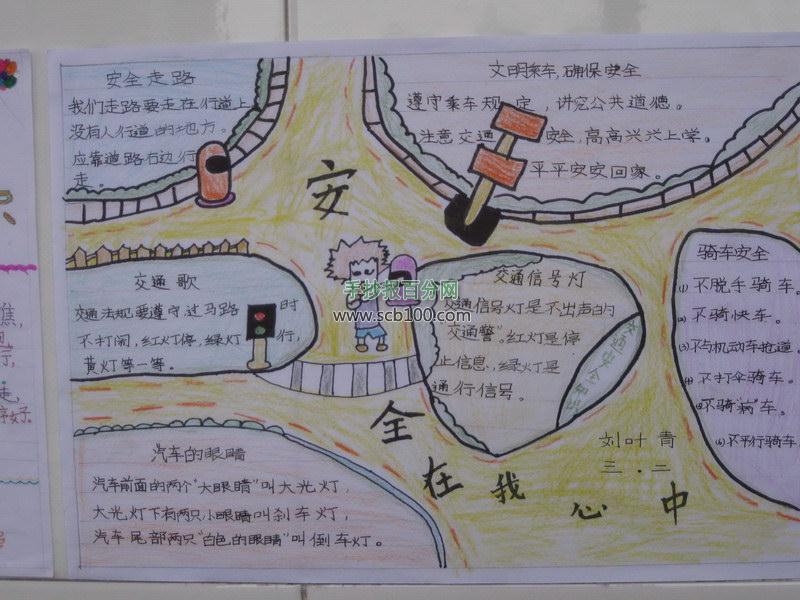 安全走路
我们走路要走在行道上
没有人行道的地方。
应靠道路右边行
走.
文明乘车,确保安全
遵守乘车规定,讲究公共道德。
注意交通安全,高高兴兴上学。
平平安安回家。
安
全
在
我
心
中
交通歌
交通法规要遵守过马路时
不打闹,红灯停,绿灯行,
黄灯等一等。
手抄报百分网
www.scb100.com
交通信号灯
交通信号灯是不出声的
"交通警"。红灯是停
止信息,绿灯是
通行信号。
交通安全知识
骑车安全
(1)不脱手骑车。
(2)不骑快车。
(3)不与机动车抢道。
(4)不打伞骑车。
(5)不骑"病"车。
(6)不平行骑车。
汽车的眼睛
汽车前面的两个"大眼睛"叫大光灯,
大光灯下有两只小眼睛叫刹车灯,
汽车尾部两只"白色的眼睛"叫倒车灯。
刘叶青
三.二